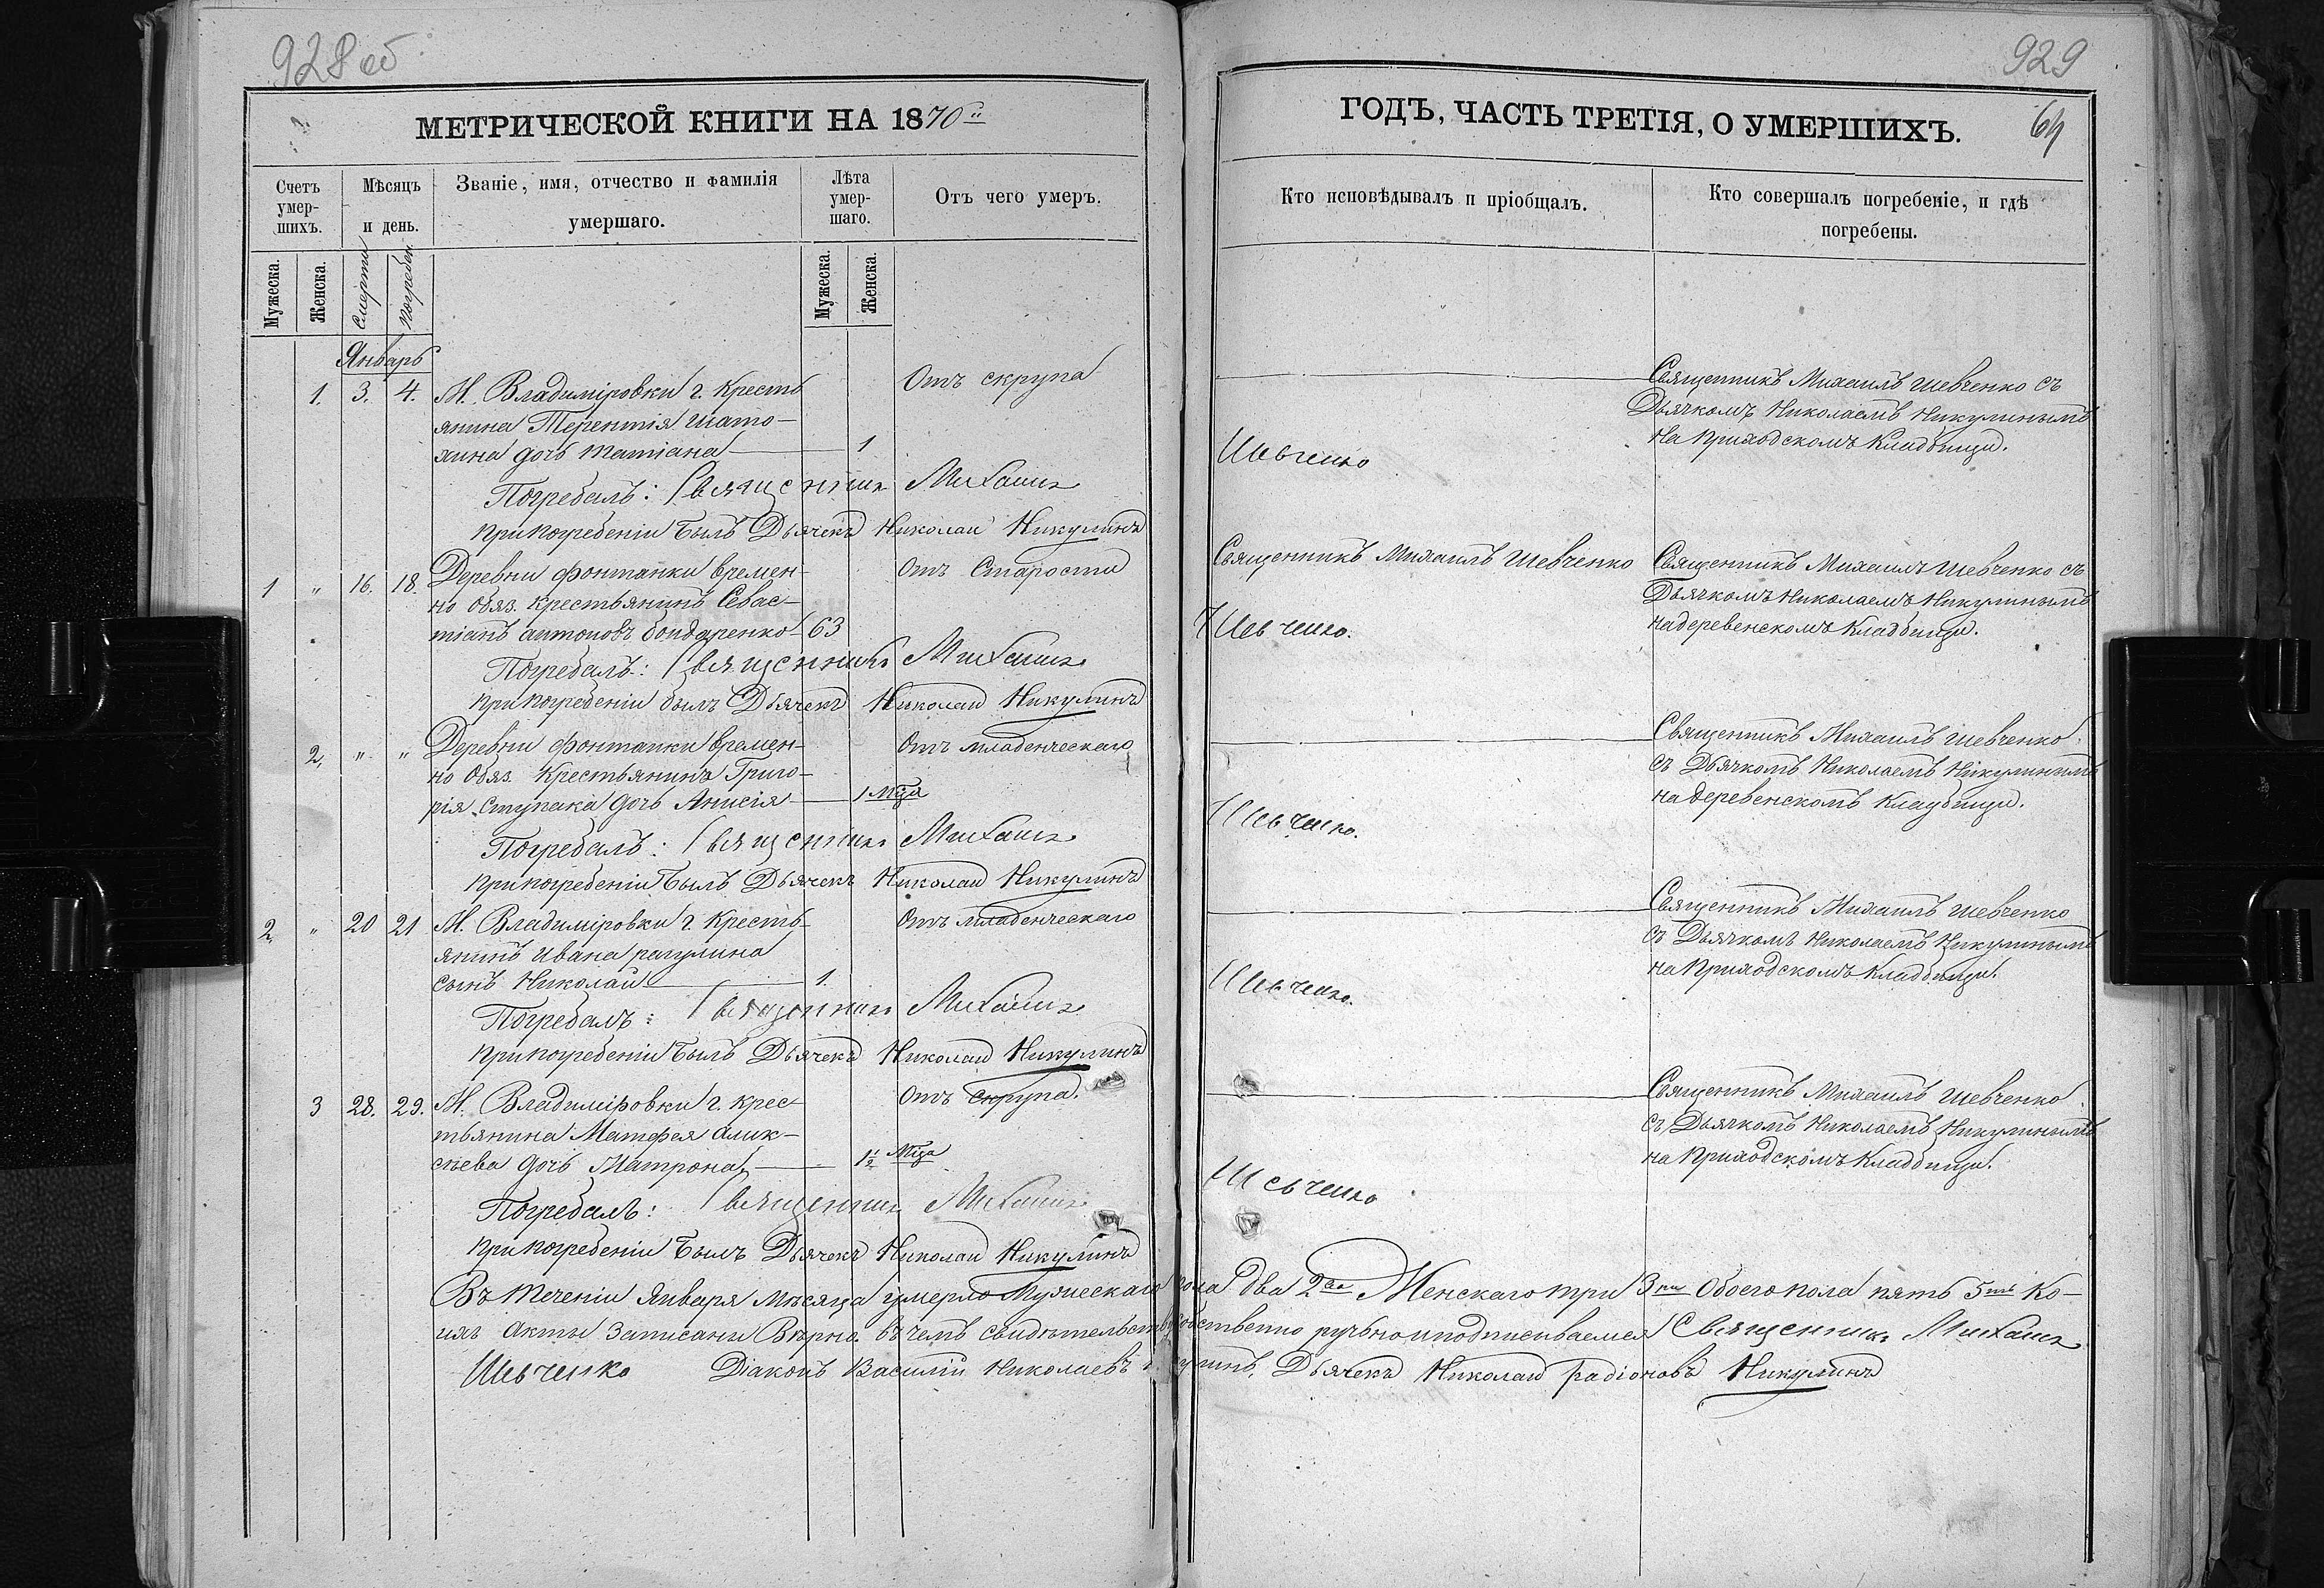 928 об
929
МЕТРИЧЕСКОЙ КНИГИ НА 1870
ГОДЪ, ЧАСТЬ ТРЕТІЯ, О УМЕРШИХЪ.
64
Счетъ умер-шихъ.
Мѣсяцъ и день.
Званіе, имя, отчество и фамилія умершаго.
Лѣта умер-шаго.
Отъ чего умеръ.
Кто исповѣдывалъ и пріобщалъ.
Кто совершалъ погребеніе, и гдѣ погребены.
Мужеска.
Женска.
Смерти
Погребен.
Мужеска.
Женска.
Январь
1. 3. 4. М. Владиміровки г. Кресть
янина Терентія Шато-
хина дочь Татіана 1
Отъ скрупа
Священникъ Михаилъ Шевченко съ
Дьячкомъ Николаемъ Никулинымъ
На Приходскомъ Кладбищи.
Погребалъ: Священникъ Михаилъ Шевченко
При погребеніи былъ Дьячекъ Николай Никулинъ
1 " 16. 18. Деревни Фонтанки времен-
но обяз. крестьянинъ Севас-
тіанъ Антоновъ Бондаренко 63
Отъ Старости
Священникъ Михаилъ Шевченко
Священникъ Михаилъ Шевченко съ
Дьячкомъ Николаемъ Никулинымъ
на деревенскомъ Кладбищи.
Погребалъ: Священникъ Михаилъ Шевченко.
При погребеніи былъ Дьячекъ Николай Никулинъ
2, " " Деревни Фонтанки времен-
но обяз. Крестьянина Григо-
рія Ступака дочь Анисія 1 Мца
Отъ младенческаго
Священникъ Михаилъ Шевченко
съ Дьячкомъ Николаемъ Никулинымъ
на деревенскомъ Кладбищи.
Погребалъ: Священникъ Михаилъ Шевченко.
При погребеніи былъ Дьячекъ Николай Никулинъ
2, " 20 21 М. Владиміровки г. Кресть-
янинъ Ивана
сынъ Николай 1.
Отъ младенческаго
Священникъ Михаилъ Шевченко
съ Дьячкомъ Николаемъ Никулинымъ
на Приходскомъ Кладбищи.
Погребалъ: Священникъ Михаилъ Шевченко.
При погребеніи былъ Дьячекъ Николай Никулинъ
3 28. 29. М. Владиміровки г. крес-
тьянина Матфея Алик-
сѣева дочь Матрона 1½ Мца
Отъ скрупа.
Священникъ Михаилъ Шевченко
съ Дьячкомъ Николаемъ Никулинымъ
на Приходскомъ Кладбищи.
Погребалъ: Священникъ Михаилъ Шевченко
При погребеніи былъ Дьячекъ Николай Никулинъ
Въ теченіи Января мѣсяца умерло Мужескаго пола два 2ва Женскаго три 3ри Обоего пола пять 5ть Ко-
ихъ Акты Записаны Вѣрно. въ чемъ свидѣтельств собственно ручьно и подписываемся Священникъ Михаилъ
Шевченко Діаконъ Василій Николаевъ Дьячекъ Николай Радіоновъ Никулинъ